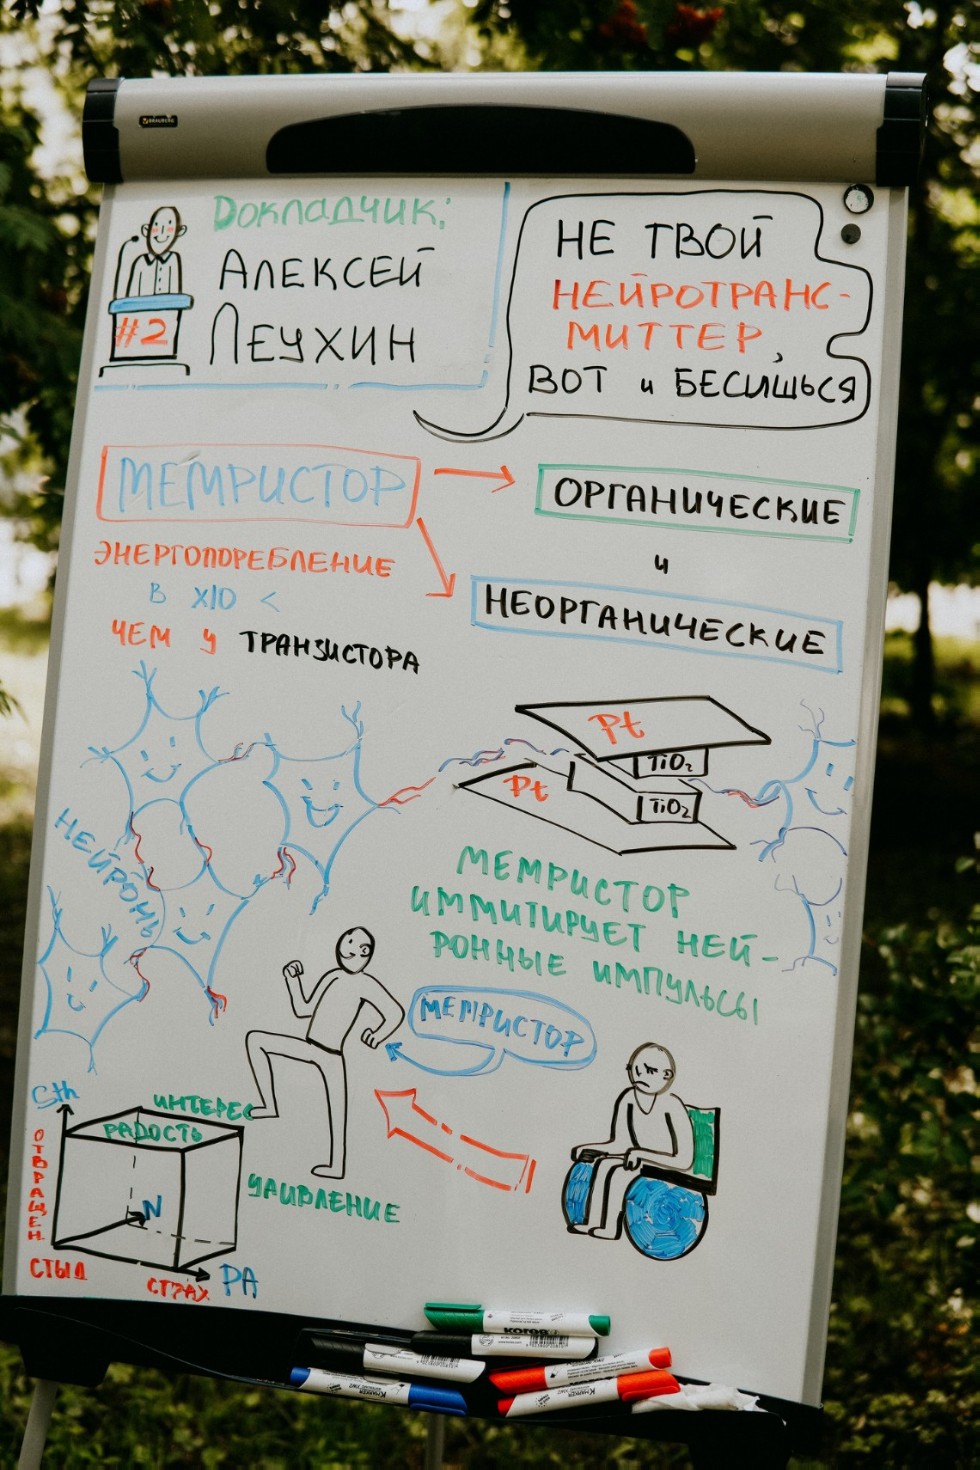 BRAUBERG
Докладчик:
АЛЕКСЕЙ
ЛЕУХИН
#2
НЕ ТВОЙ
НЕЙРОТРАНС-
МИТТЕР,
ВОТ и БЕСИШЬСЯ
МЕМРИСТОР
ОРГАНИЧЕСКИЕ
и
НЕОРГАНИЧЕСКИЕ
ЭНЕРГОПОРЕБЛЕНИЕ
В X10 <
ЧЕМ У ТРАНЗИСТОРА
Pt
TiO₂
Pt
TiO₂
НЕЙРОНЫ
МЕМРИСТОР
ИММИТИРУЕТ НЕЙ-
РОННЫЕ ИМПУЛЬСЫ
МЕМРИСТОР
5th
ИНТЕРЕС
РАДОСТЬ
ОТВРАЩЕН.
N
УДИВЛЕНИЕ
СТЫД
СТРАХ
PA
kores